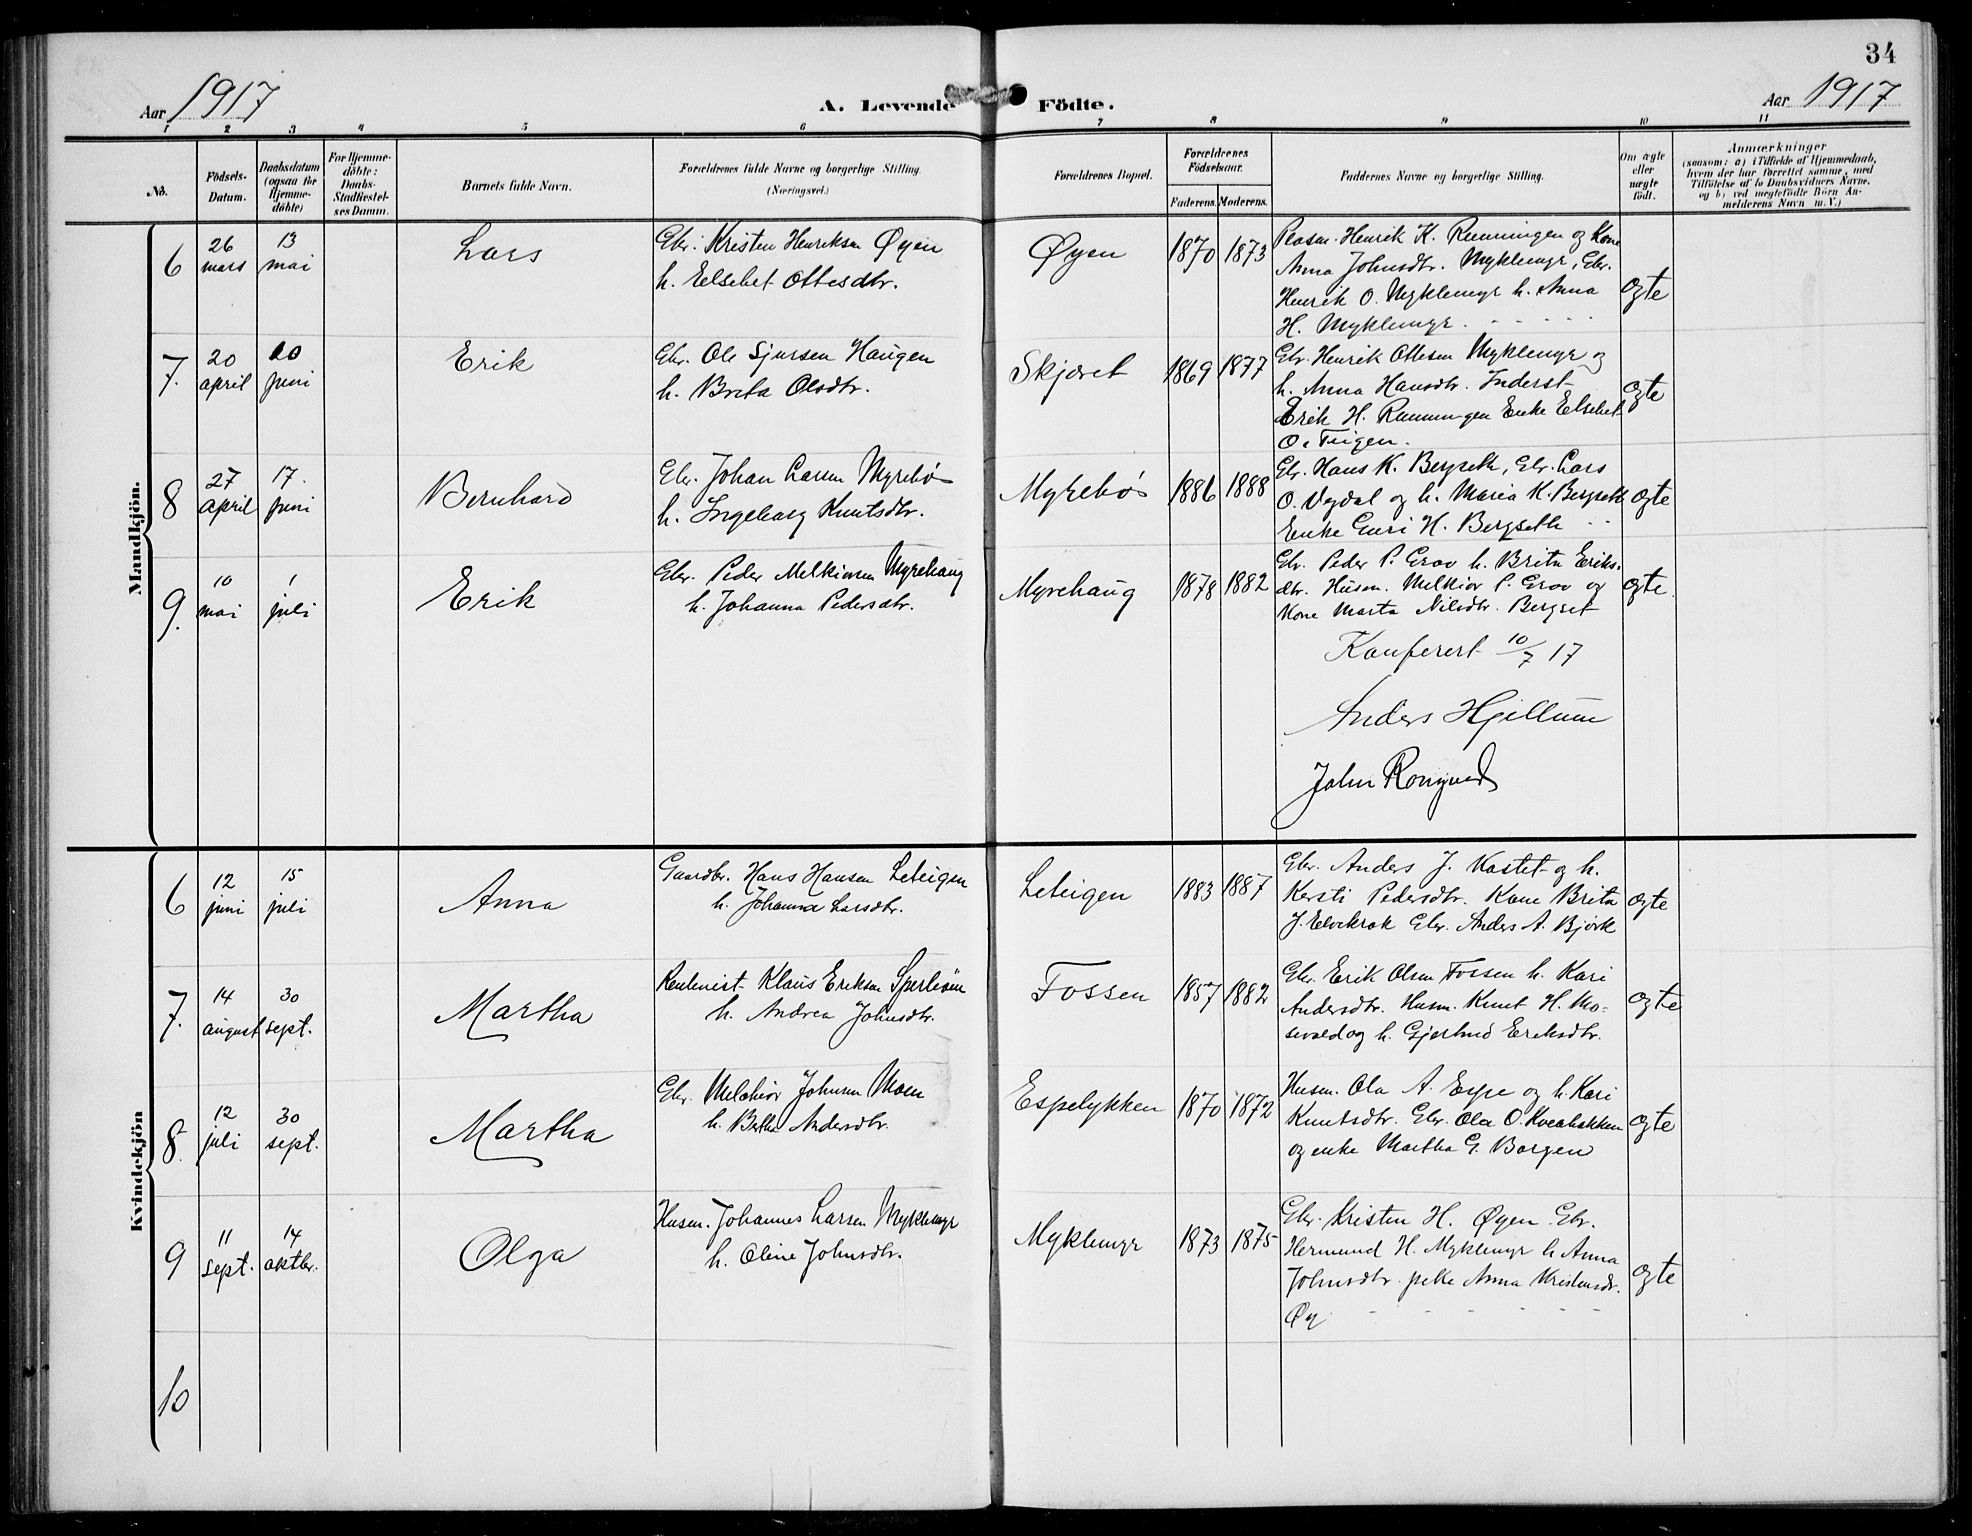 34
Aar 1917
A. Levende Födte.
Aar 1917
1 2 3 4 5 6 7 8 9 10 11
No.
Födsels-Datum.
Daabsdatum (ogsaa for Hjemme-döbte)
For Hjemme-döbte: Daabs-Stadfæstel-ses Datum.
Barnets fulde Navn.
Forældrenes fulde Navne og borgerlige Stilling. (Næringsvei.)
Forældrenes Bopæl.
Forældrenes Födselsaar.
Faderens. Moderens.
Faddernes Navne og borgerlige Stilling.
Om ægte eller uægte født.
Anmærkninger
(saasom: a) i Tilfælde af Hjemmedaab,
hvem der har forrettet samme, med
Tilföielse af to Daabsvidners Navne,
og b) ved uægtefödte Börn An-
melderens Navn m. V.)
Mandkjön.
6
26 mars
13 mai
Lars
Gbr. Kristen Henriksen Øyen
h. Eelsebet Ottesdtr.
Øyen
1870 1873
Henrik K. Runningen og Kone
Anna Johnsdtr. Myklemyr, Gbr.
Henrik O. Myklemyr h. Anna
H. Myklemyr.
Ogte
7.
20 april
10 juni
Erik
Gbr. Ole Sjursen Haugen
h. Brita Olsdtr.
Skjæret
1869 1877
Gbr. Henrik Ottesen Myklemyr og
h. Anna Hansdtr. Inderst
Erik H. Runningen Enke Elsebet
O. Teigen.
Ogte
8
27 april
17. juni
Bernhard
Gbr. Johan Larsen Myrebø
h. Ingeborg Knutsdtr.
Myrebø
1886 1888
Gbr. Hans K. Bergseth, Gbr. Lars
O. Vagdal og h. Maria K. Bergseth
Enke Guri H. Bergseth
Ogte
9.
10 mai
1 juli
Erik
Gbr. Peder Melkiorsen Myrehaug
h. Johanna Pedersdtr.
Myrehaug
1878 1882
Gbr. Peder P. Grov h. Brita Eriks-
dtr. Husm. Melkior P. Grov og
Kone Marta Nilsdtr. Bergset
Ogte.
Konferert 10/7 17
Anders Hjellum
John Rongved
Kvindekjön
6
12 juni
15 juli
Anna
Gaardbr. Hans Hansen Leteigen
h. Johanna Larsdtr.
Leteigen
1883 1887
Gbr. Anders J. Kastet og h.
Kersti Pedersdtr. Kone Brita
J. Elvekrok Gbr. Anders A. Bjørk
Ogte
7.
14 august
30 sept.
Martha
Rentenist Klaus Eriksen Sperleøen
h. Andrea Johnsdtr.
Fossen
1857 1882
Gbr. Erik Olsen Fossen h. Kari
Andersdtr. Husm. Knut H. Mo-
sevold og h. Gjertrud Eriksdtr.
Ogte
8.
12 juli
30 sept.
Martha
Gbr. Melchior Johnsen Moen
h. Bertha Andersdtr.
Espelykken
1870 1872
Husm. Ola A. Espe og h. Kari
Knutsdtr. Gbr. Ola O. Kvealekken
og enke Martha G. Borgen
Ogte
9
11 sept.
14 oktbr.
Olga
Husm. Johannes Larsen Myklemyr
h. Oline Johnsdtr.
Myklemyr
1873 1875
Gbr. Kristen H. Øyen Gbr.
Hermund H. Myklemyr h Anna
Johnsdtr. pike Anna Kristensdr.
Øy
Ogte
10